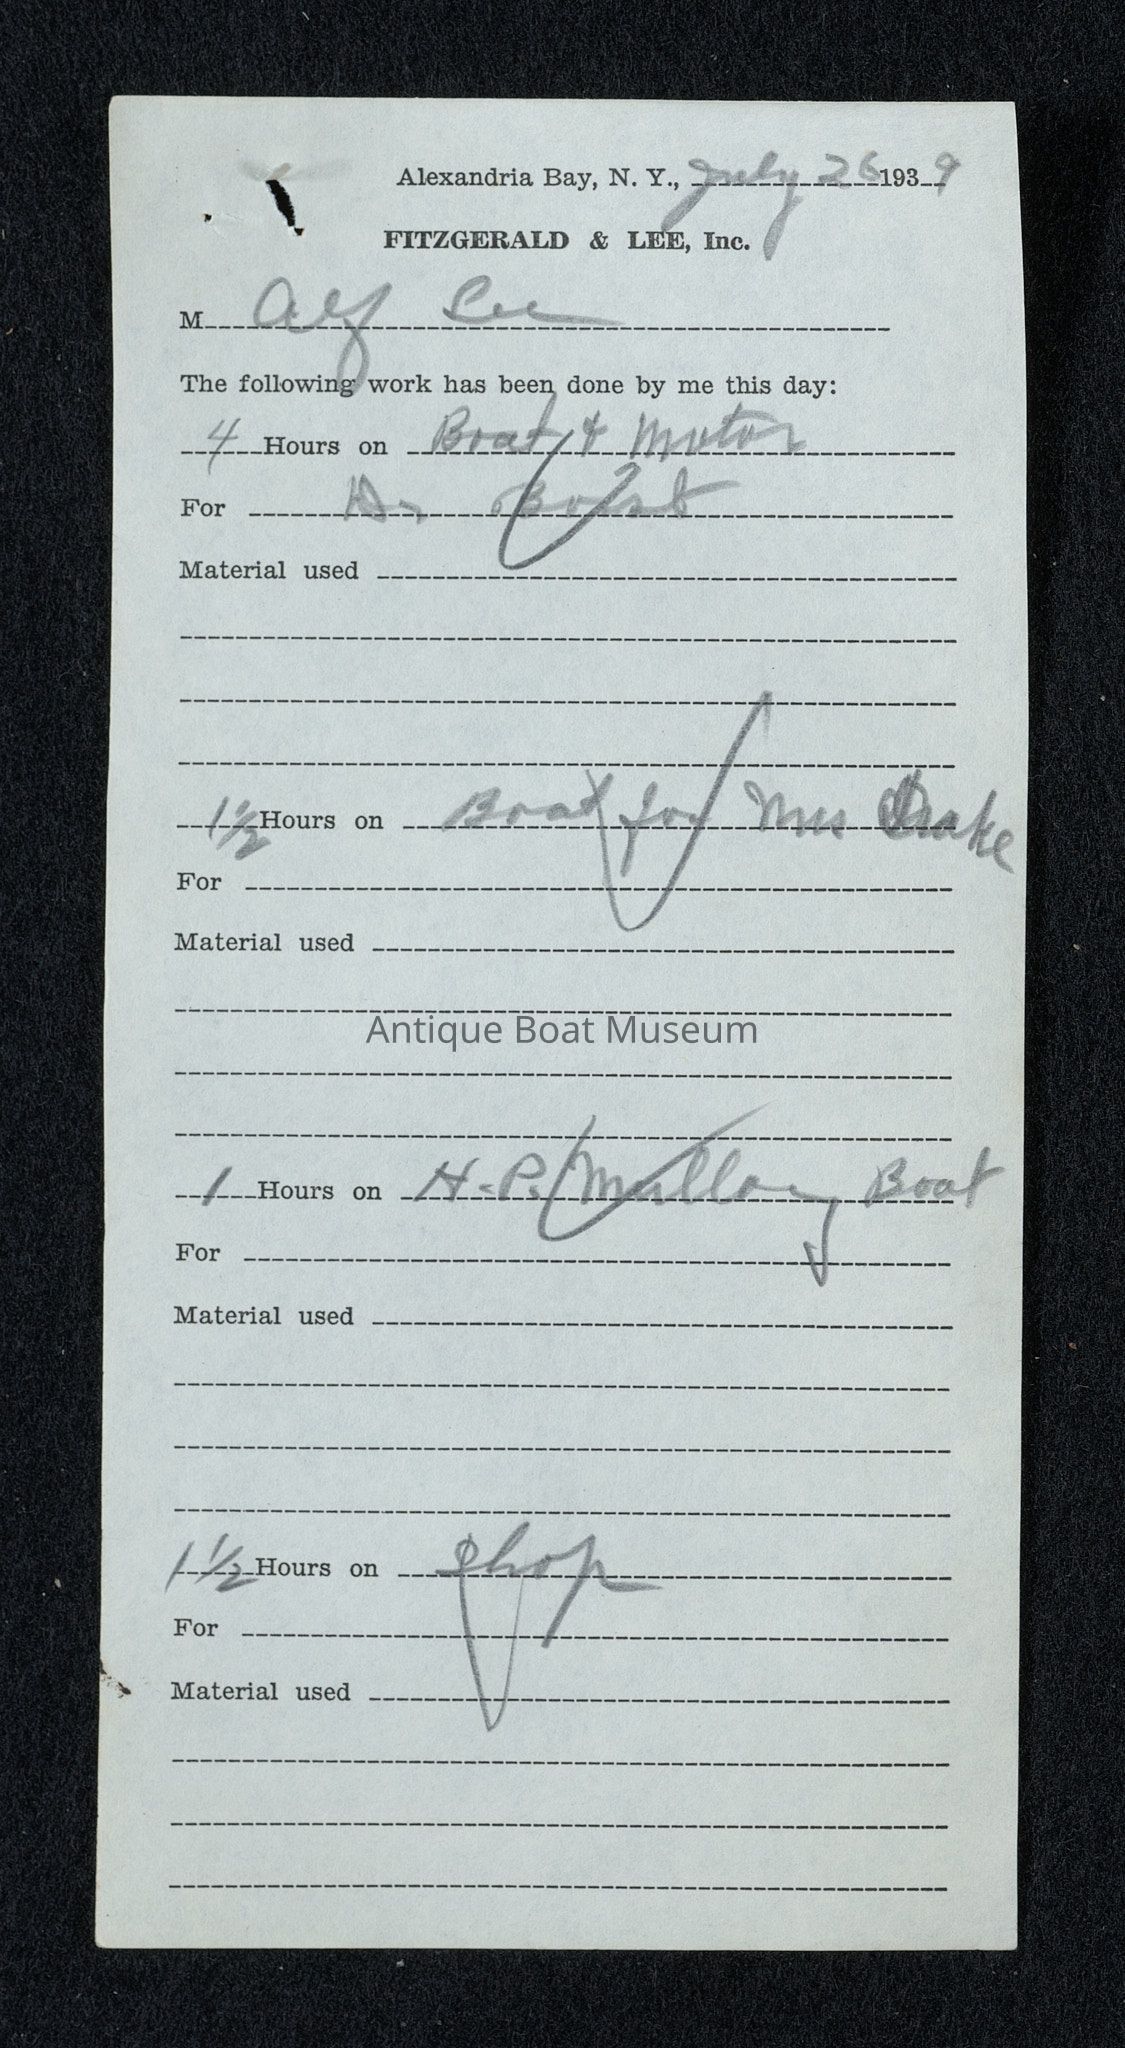 Alexandria Bay, N. Y., July 26 1939
FITZGERALD & LEE, Inc.
M Alf Lee
The following work has been done by me this day:
4 Hours on Boat & Motor
For Dr
Material used
1 1/2 Hours on Boat for Mrs Drake
For
Material used
Antique Boat Museum
1 Hours on H.P. Mallory Boat
For
Material used
1 1/2 Hours on Shop
For
Material used